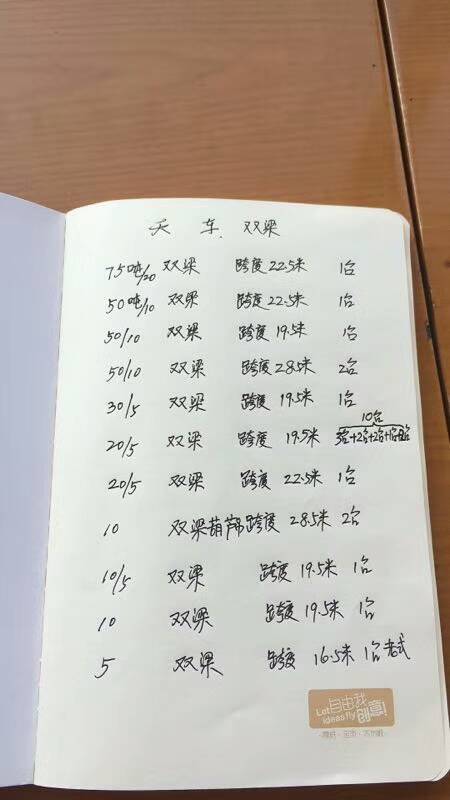 天车 双梁
75吨/20 双梁 跨度22.5米 1台
50吨/10 双梁 跨度22.5米 1台
50/10 双梁 跨度19.5米 1台
50/10 双梁 跨度28.5米 2台
30/5 双梁 跨度19.5米 1台
10台
20/5 双梁 跨度19.5米 3台+2台+2台+1台
20/5 双梁 跨度22.5米 1台
10 双梁葫芦 跨度28.5米 2台
10/5 双梁 跨度19.5米 1台
10 双梁 跨度19.5米 1台
5 双梁 跨度16.5米 1台老式
Let 自由我
ideas fly 创意!